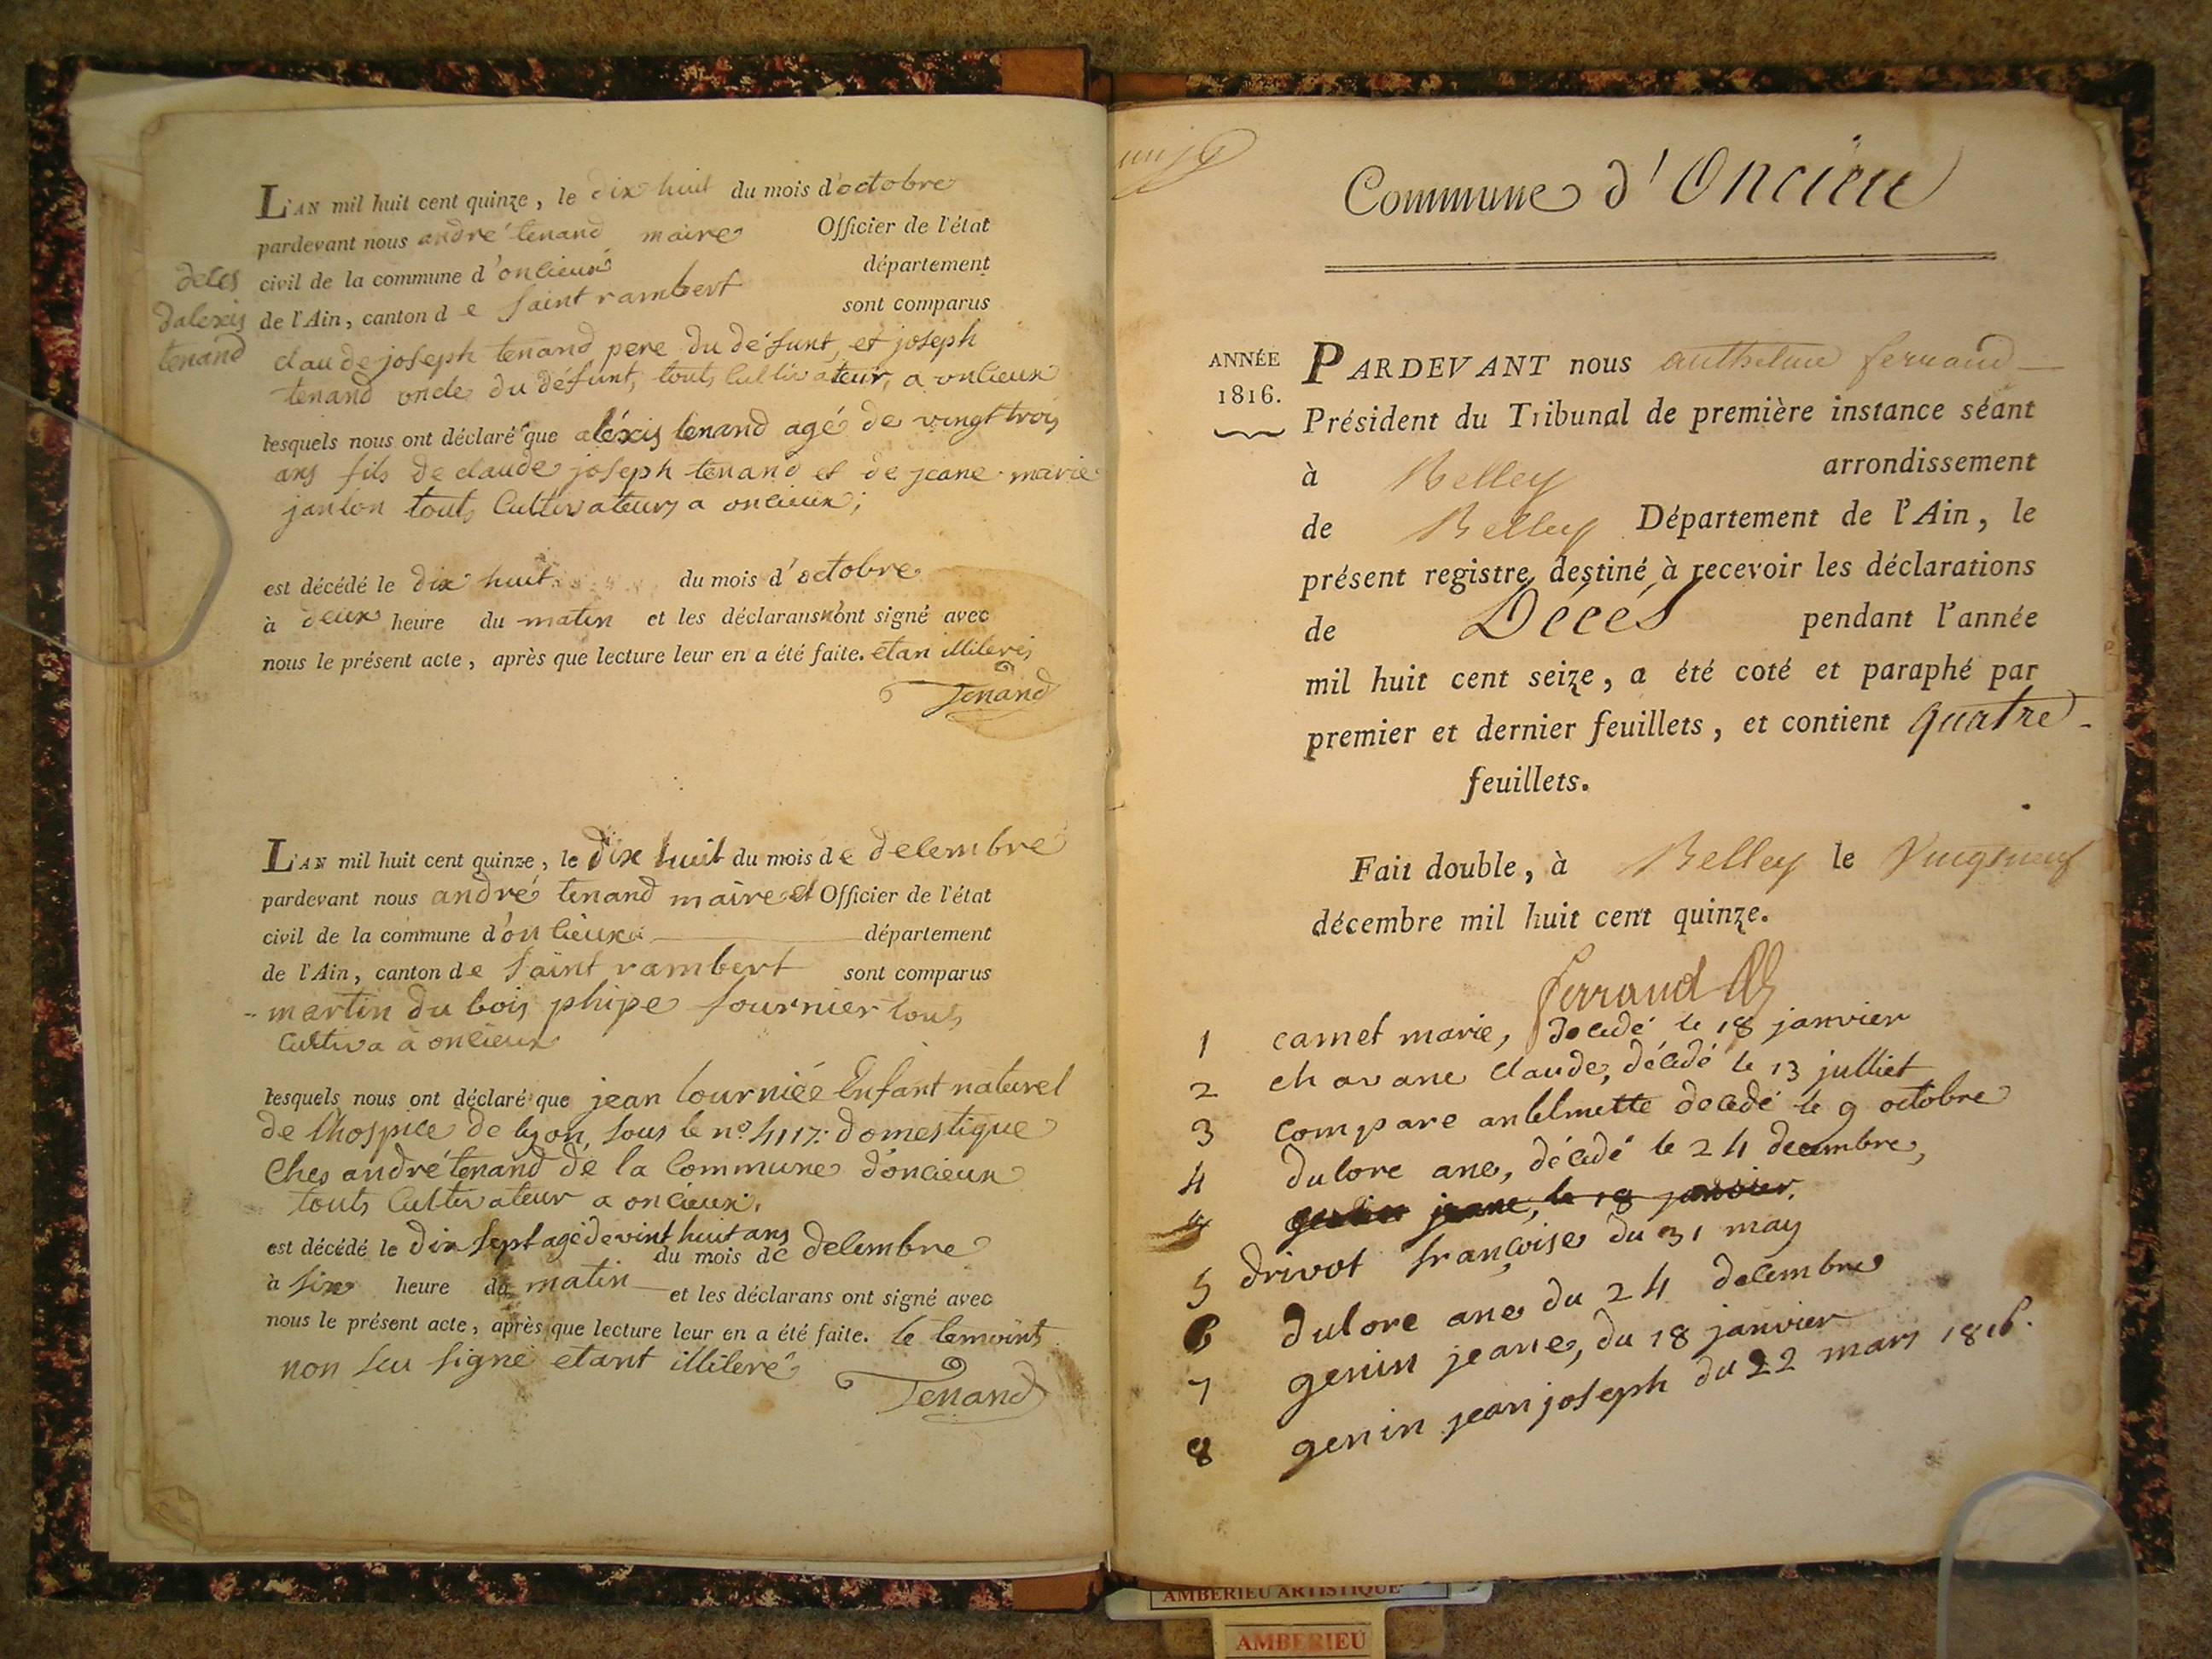 L'AN mil huit cent quinze, le dix huit du mois d'octobre
pardevant nous andré tenand maire Officier de l'état
civil de la commune d'oncieux département
de l'Ain, canton de saint rambert sont comparus
deces
dalexis
tenand
claude joseph tenand pere du défunt, et joseph
tenand oncle du défunt, touts cultivateur, a oncieux
lesquels nous ont déclaré que aléxis tenand agé de vingt trois
ans fils de claude joseph tenand et de jeane marie
janton touts cultivateurs a oncieux;
est décédé le dix huit du mois d'octobre
à deux heure du matin et les déclarans n'ont signé avec
nous le présent acte, après que lecture leur en a été faite. etan illiterés
Tenand
L'AN mil huit cent quinze, le dix huit du mois de decembre
pardevant nous andré tenand maire et Officier de l'état
civil de la commune d'oncieux département
de l'Ain, canton de saint rambert sont comparus
martin du bois phipe fournier touts
cultiva à oncieux
lesquels nous ont déclaré que jean Enfant naturel
de lhospice de lyon, sous le n° 4117: domestique
Ches andré tenand de la commune d'oncieux
touts cultivateur a oncieux.
est décédé le dix sept agé de vint huit ans du mois de decembre
à six heure du matin et les déclarans ont signé avec
nous le présent acte, après que lecture leur en a été faite. le temoints
non seu signé etant illiteré
Tenand
Commune d'Oncieu
ANNÉE
1816.
PARDEVANT nous anthelme ferrand
Président du Tribunal de première instance séant
à Belley arrondissement
de Belley Département de l'Ain, le
présent registre, destiné à recevoir les déclarations
de Décés pendant l'année
mil huit cent seize, a été coté et paraphé par
premier et dernier feuillets, et contient quatre
feuillets.
Fait double, à Belley le Vingt neuf
décembre mil huit cent quinze.
ferrand
1 camet marie, décédé le 18 janvier
2 chavane claude, décédé le 13 julliet
3 compare antelmette décédé le 9 octobre
4 dulore ane, décédé le 24 decembre,
4 jeane, le 18 janvier.
5 drivot françoise du 31 may
6 dulore ane du 24 decembre
7 genin jeane, du 18 janvier
8 genin jean joseph du 22 mars 1816.
AMBERIEU ARTISTIQUE
AMBERIEU